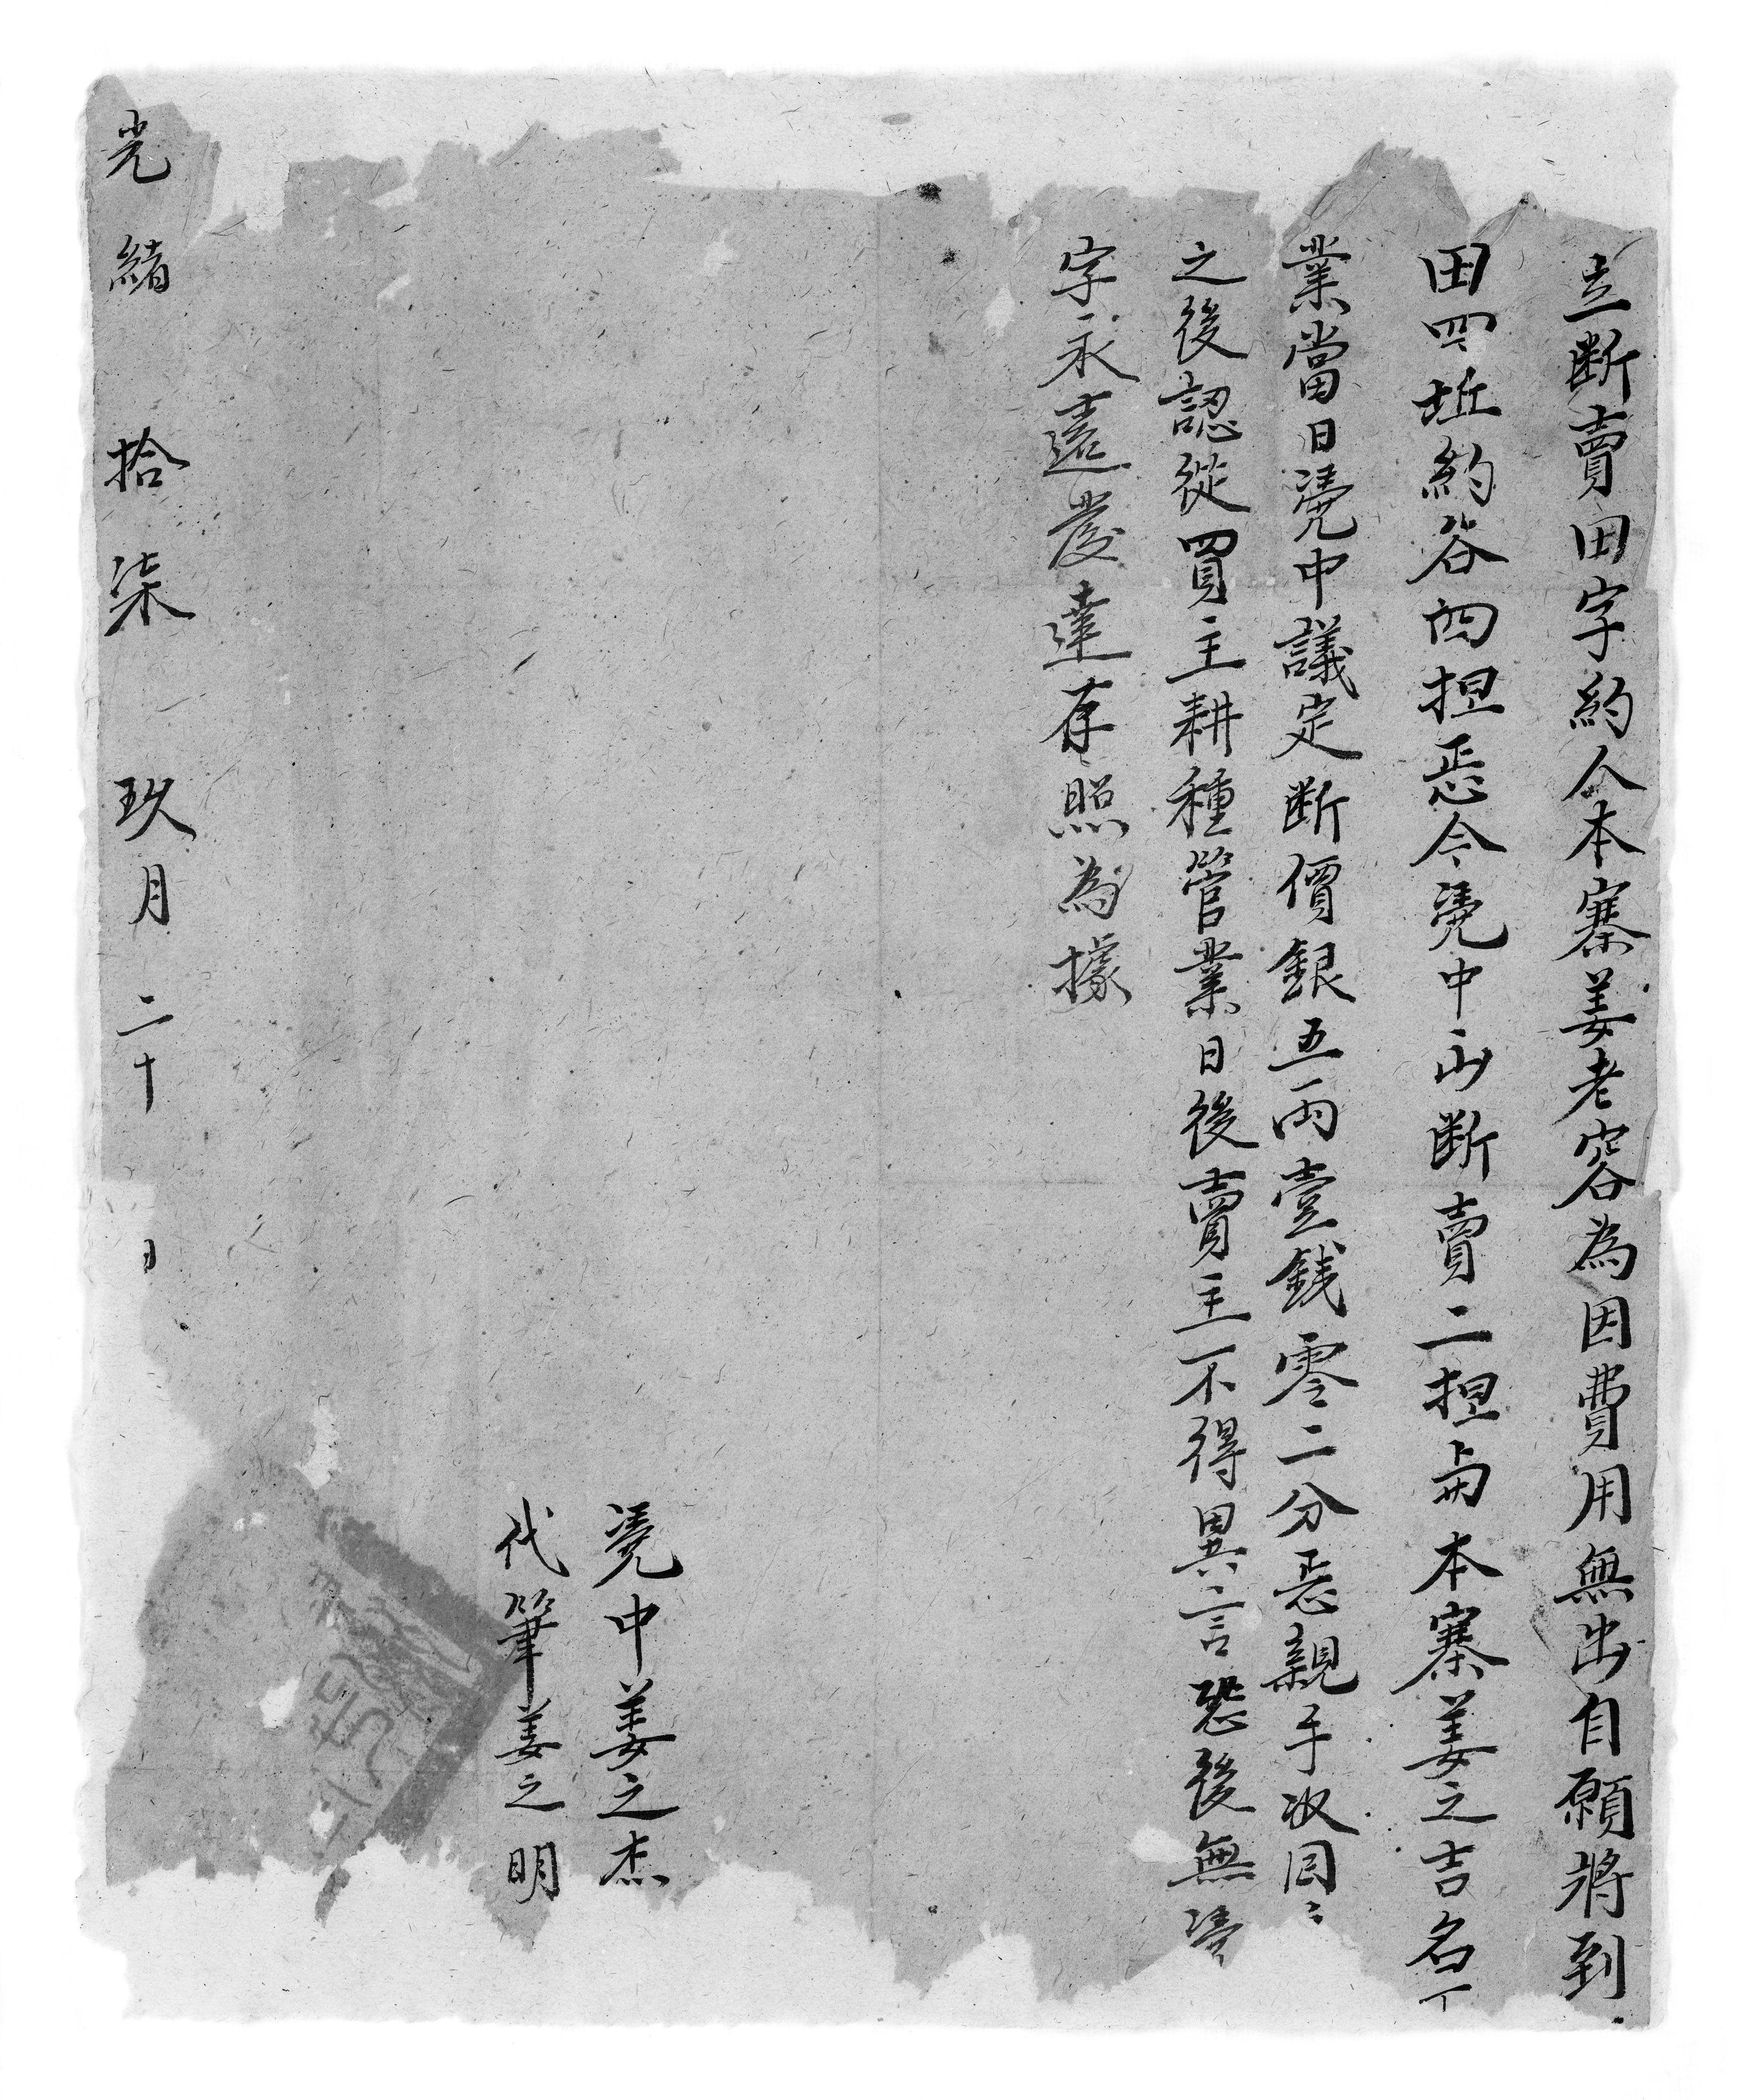 立断賣田字約人本寨姜老容為因費用無出自願將到
田四坵約谷四担㤙今凴中出断賣二担與本寨姜之吉名丁
業當日凴中議定断價銀五両壹錢零二分㤙親手収回〻
之後認從買主耕種管業日後賣主不得異言恐後無凴
字永遠發達存照為據
凴中姜之杰
代筆姜之明
光緒拾柒玖月二十日